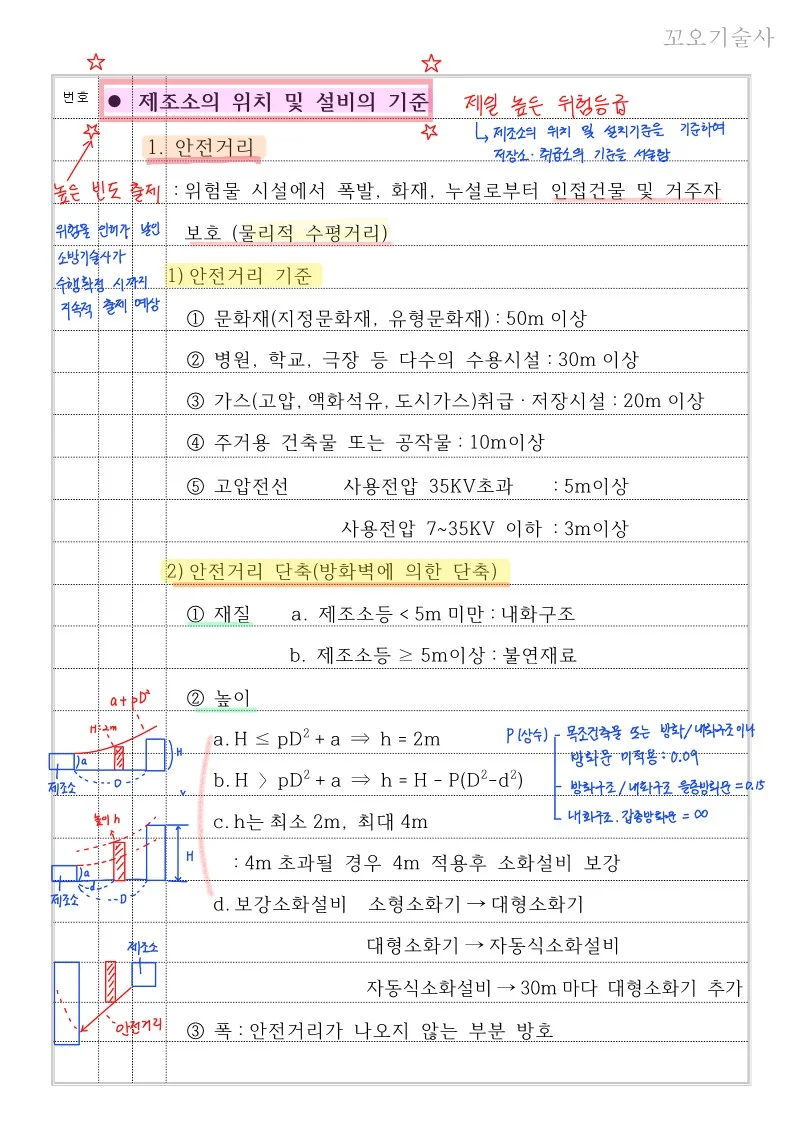 꼬오기술사
번호
● 제조소의 위치 및 설비의 기준
제일 높은 위험등급
↳ 제조소의 위치 및 설치기준을 기준하여
저장소·취급소의 기준을 서술함
1. 안전거리
높은 빈도 출제
: 위험물 시설에서 폭발, 화재, 누설로부터 인접건물 및 거주자
보호 (물리적 수평거리)
위험물 인허가 날인
소방기술사가
수행확정 시까지
지속적 출제 예상
1) 안전거리 기준
① 문화재(지정문화재, 유형문화재) : 50m 이상
② 병원, 학교, 극장 등 다수의 수용시설 : 30m 이상
③ 가스(고압, 액화석유, 도시가스)취급·저장시설 : 20m 이상
④ 주거용 건축물 또는 공작물 : 10m이상
⑤ 고압전선 사용전압 35KV초과 : 5m이상
사용전압 7~35KV 이하 : 3m이상
2) 안전거리 단축(방화벽에 의한 단축)
① 재질 a. 제조소등 < 5m 미만 : 내화구조
b. 제조소등 ≥ 5m이상 : 불연재료
② 높이
a. H ≤ pD² + a ⇒ h = 2m
b. H 〉 pD² + a ⇒ h = H - P(D²-d²)
c. h는 최소 2m, 최대 4m
: 4m 초과될 경우 4m 적용후 소화설비 보강
d. 보강소화설비 소형소화기 → 대형소화기
대형소화기 → 자동식소화설비
자동식소화설비 → 30m 마다 대형소화기 추가
③ 폭 : 안전거리가 나오지 않는 부분 방호
P(상수) - 목조건축물 또는 방화/내화구조이나
방화문 미적용 : 0.09
- 방화구조/내화구조 을종방화문 = 0.15
내화구조. 갑종방화문 = ∞
a+pD²
H=2m
a
H
D
제조소
높이 h
a
H
d
D
제조소
제조소
안전거리